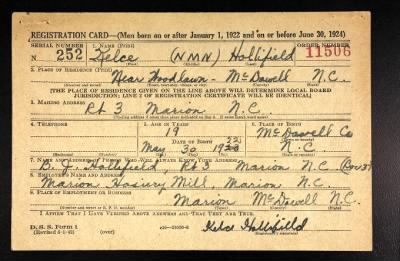 REGISTRATION CARD—(Men born on or after January 1, 1922 and on or before June 30, 1924)
SERIAL NUMBER 1. NAME (Print) ORDER NUMBER
N 252 Kelce (NMN) Hollifield 11506
2. PLACE OF RESIDENCE (Print)
Near Woodlawn - McDowell N.C.
[THE PLACE OF RESIDENCE GIVEN ON THE LINE ABOVE WILL DETERMINE LOCAL BOARD
JURISDICTION; LINE 2 OF REGISTRATION CERTIFICATE WILL BE IDENTICAL]
3. MAILING ADDRESS
Rt 3 Marion N.C.
4. TELEPHONE 5. AGE IN YEARS 6. PLACE OF BIRTH
19 McDowell Co
DATE OF BIRTH
May 30 N.C.
7. NAME AND ADDRESS OF PERSON WHO WILL ALWAYS KNOW YOUR ADDRESS
Hollifield, Rt 3 Marion N.C.
8. EMPLOYER'S NAME AND ADDRESS
Marion Hosiery Mill, Marion N.C.
9. PLACE OF EMPLOYMENT OR BUSINESS
Marion McDowell N.C.
I AFFIRM THAT I HAVE VERIFIED ABOVE ANSWERS AND THAT THEY ARE TRUE.
D. S. S. Form 1
(Revised 6-1-42) (over) Kelce Hollifield